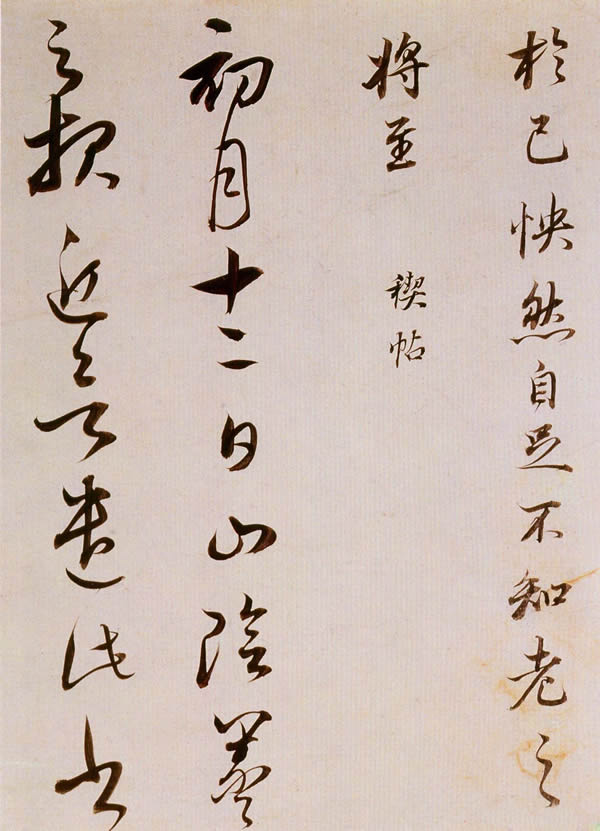 於己怏然自足不知老之
将至
禊帖
初月十二日山陰羲
之報近欲遣此書